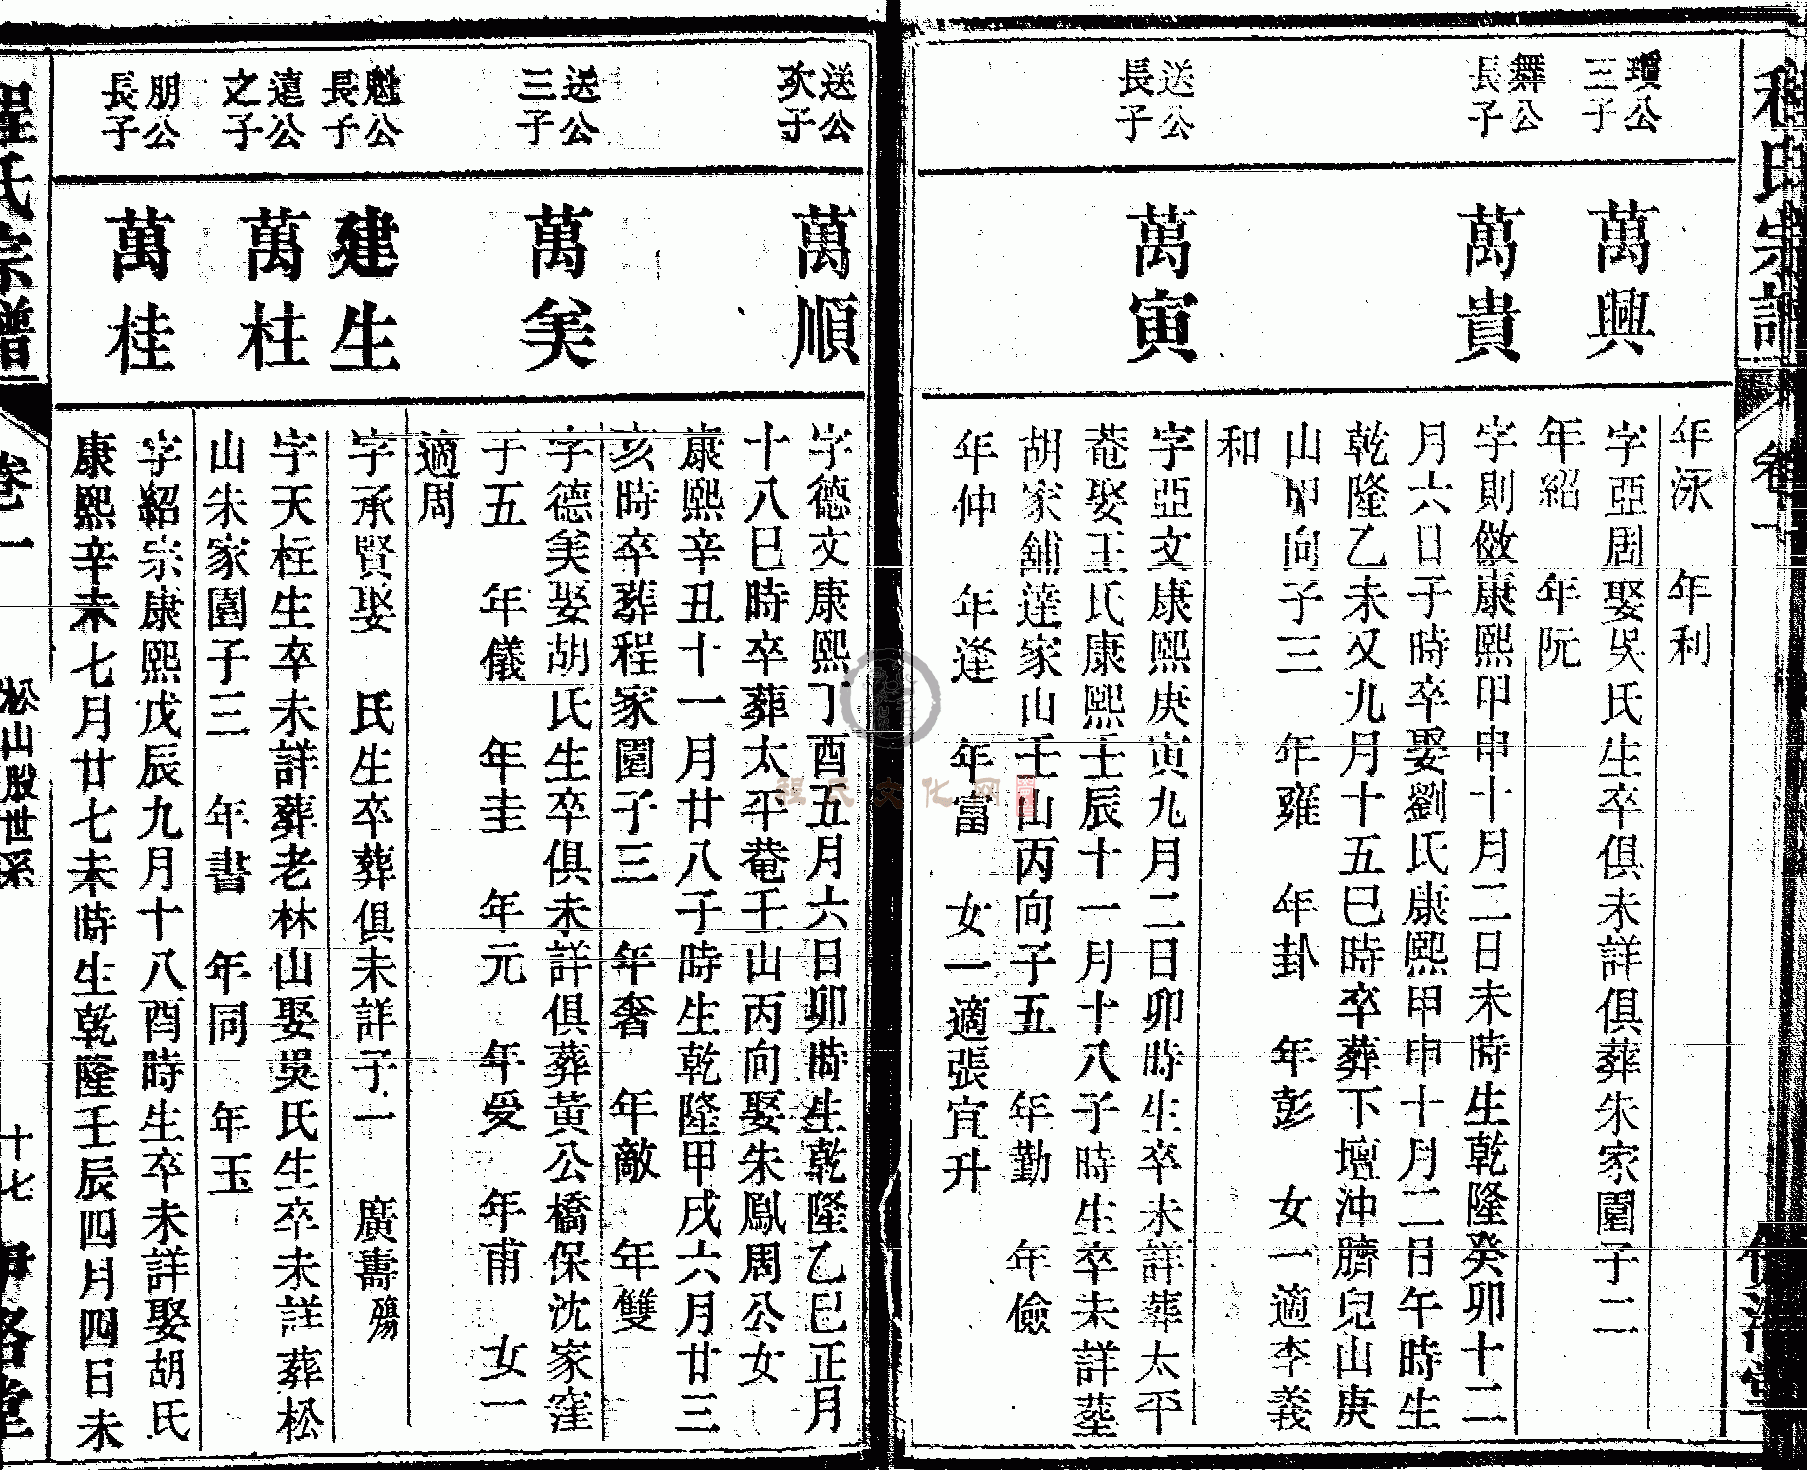 程氏宗譜
卷一
瓊公
三子
萬興
舞公
長子
萬貴
送公
長子
萬寅
年泳　年利
字亞周娶吳氏生卒俱未詳俱葬朱家園子二
年紹　年阮
字則傚康熙甲申十月二日未時生乾隆癸卯十二
月六日子時卒娶劉氏康熙甲申十月二日午時生
乾隆乙未又九月十五巳時卒葬下壇沖臍兒山庚
山甲向子三　年雍　年卦　年彭　女一適李義
和
字亞文康熙庚寅九月二日卯時生卒未詳葬太平
菴娶王氏康熙壬辰十一月十八子時生卒未詳葬
胡家舖達家山壬山丙向子五　年勤　年儉
年仲　年逢　年富　女一適張宜升
送公
次子
萬順
送公
三子
萬羙
魁公
長子
建生
遠公
之子
萬柱
朋公
長子
萬桂
字德文康熙丁酉五月六日卯時生乾隆乙巳正月
十八巳時卒葬太平菴壬山丙向娶朱鳳周公女
康熙辛丑十一月廿八子時生乾隆甲戌六月廿三
亥時卒葬程家園子三　年奢　年敵　年雙
字德羙娶胡氏生卒俱未詳俱葬黃公橋保沈家窪
子五　年儀　年圭　年元　年受　年甫　女一
適周
字承賢娶　氏生卒葬俱未詳子一　廣壽殤
字天柱生卒未詳葬老林山娶吳氏生卒未詳葬松
山朱家園子三　年書　年同　年玉
字紹宗康熙戊辰九月十八酉時生卒未詳娶胡氏
康熙辛未七月廿七未時生乾隆壬辰四月四日未
程氏宗譜
卷一
淞山股世系
十七
伊洛堂
程氏文化网